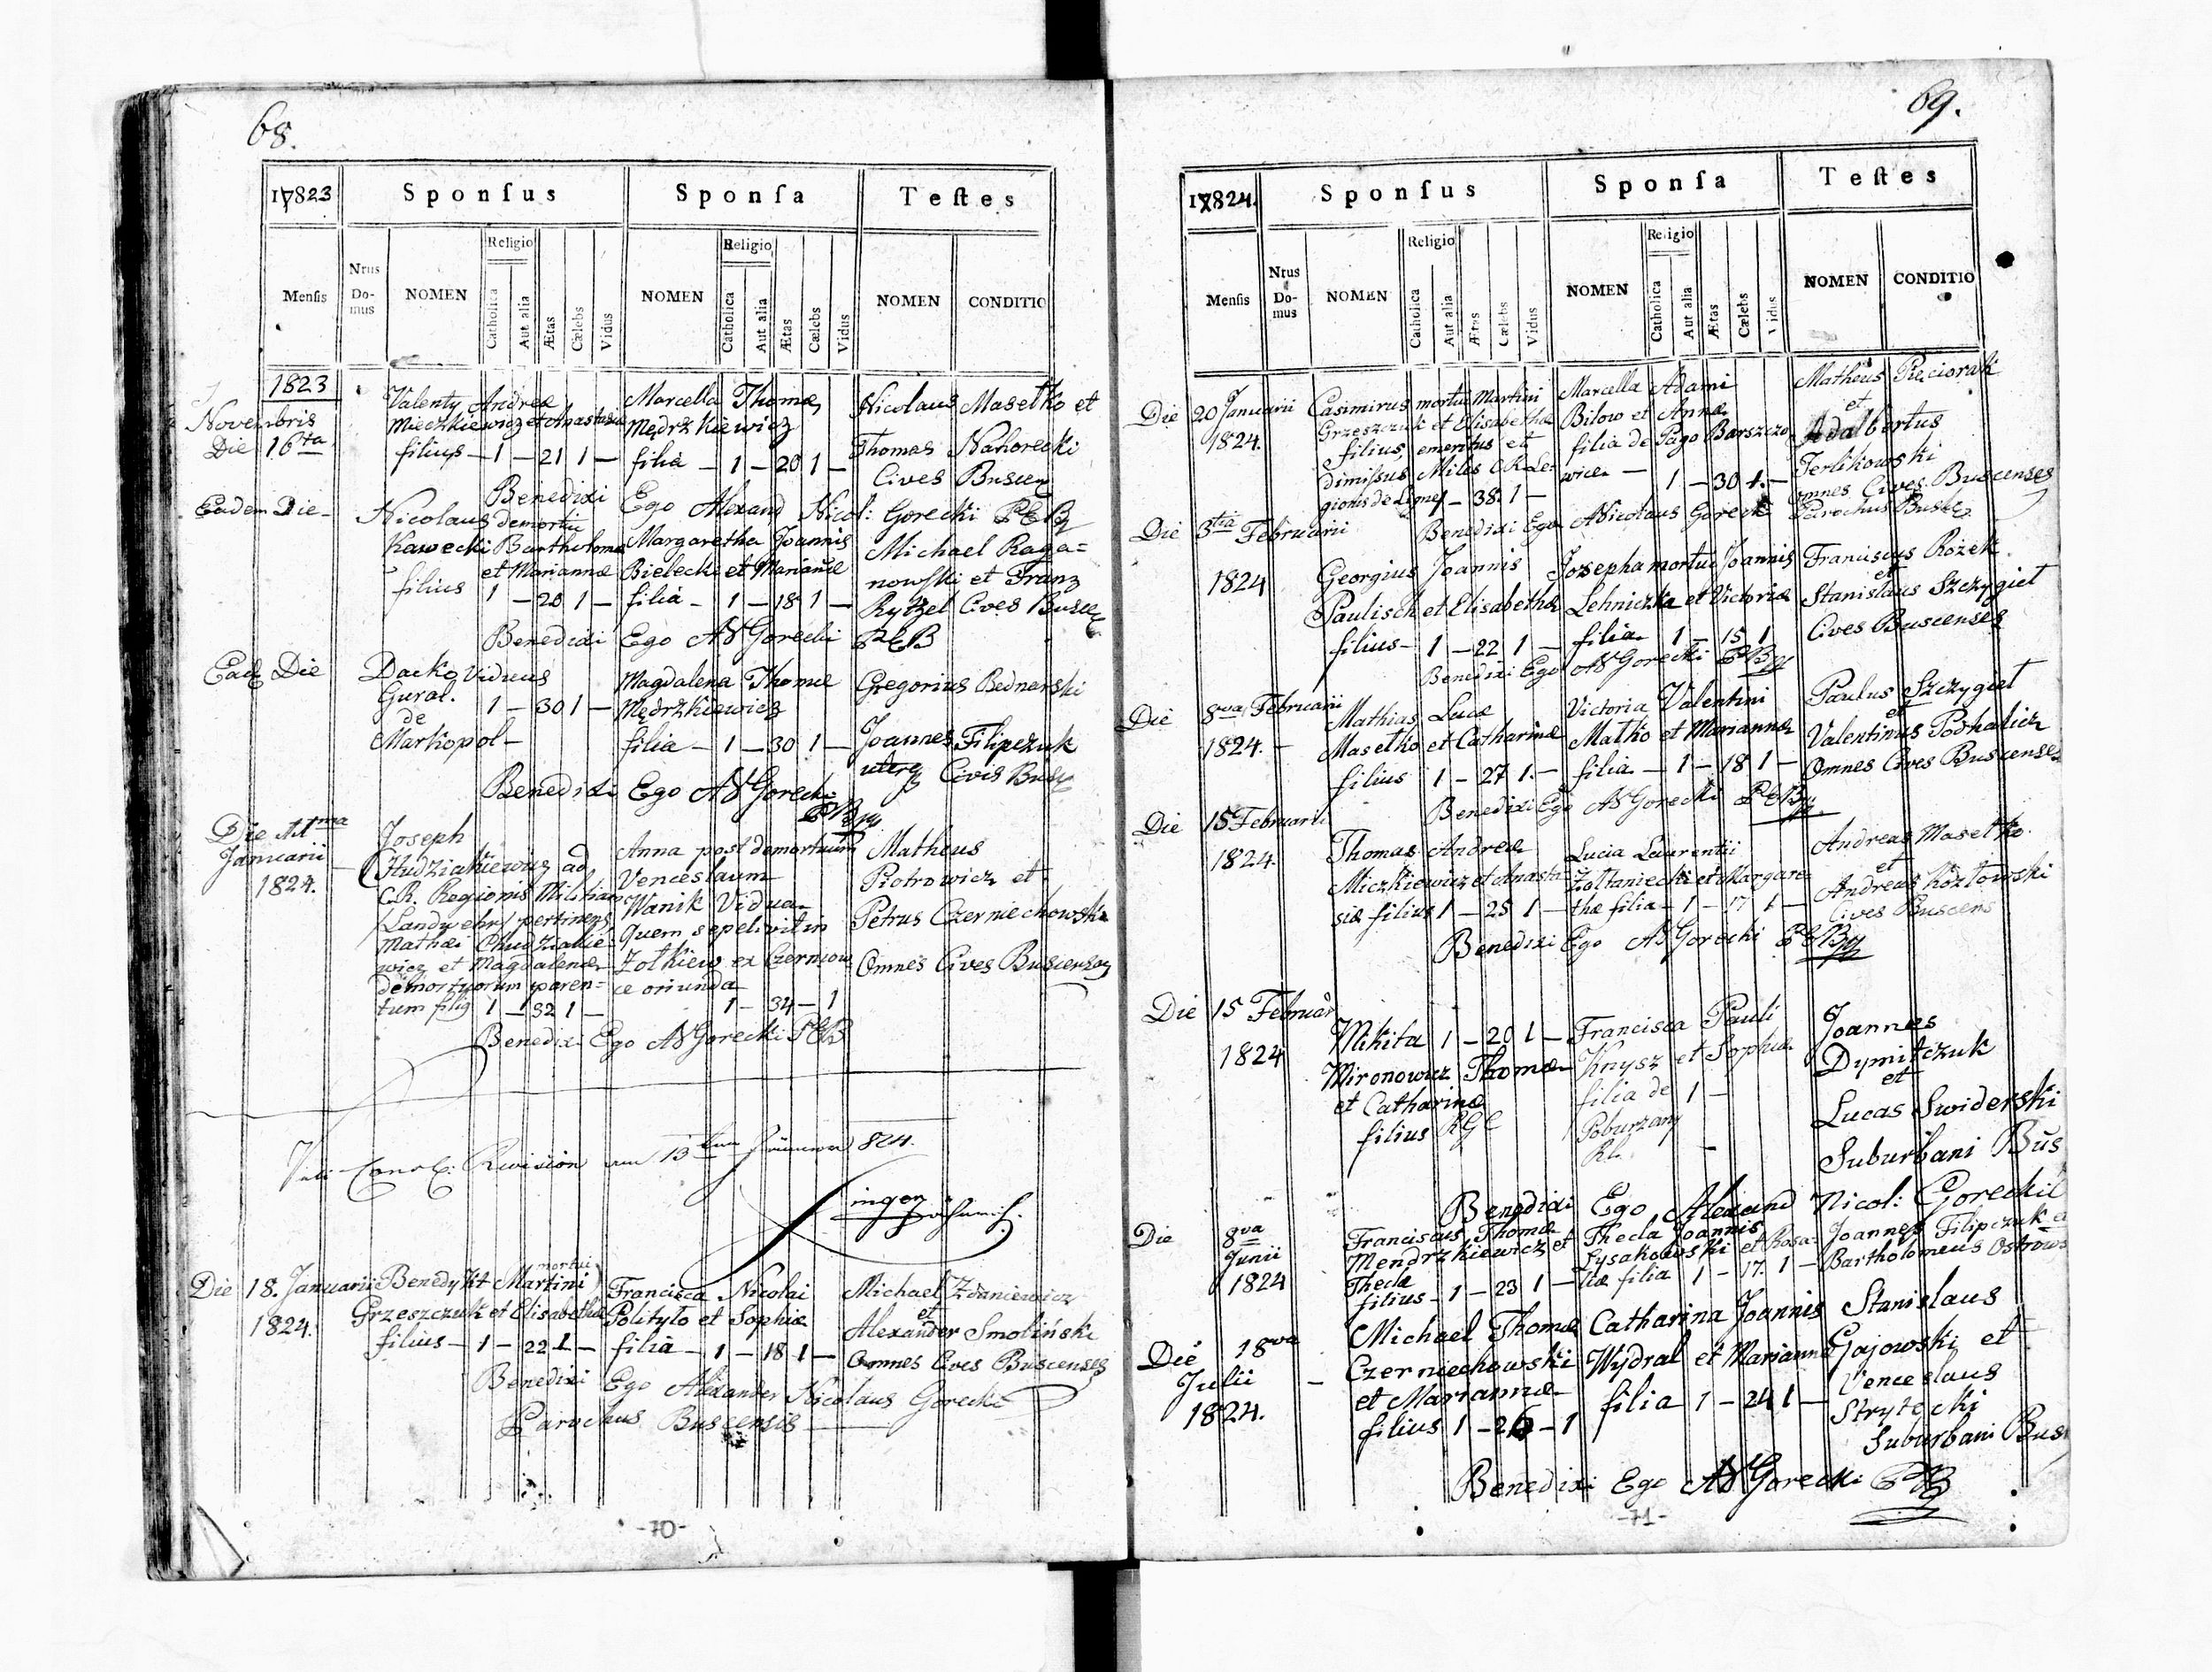 68.
17823 Sponsus Sponsa Testes
Mensis Nrus Domus NOMEN Religio Catholica Aut alia Ætas Cælebs Vidus NOMEN Religio Catholica Aut alia Ætas Cælebs Vidus NOMEN CONDITIO
1823
Novembris
Die 16ta
Valenty Andreæ
Mieczkiewicz et Anastasiæ
filius 1 - 21 1 -
Marcella Thomæ
Mędrzkiewicz
filia - 1 - 20 1 -
Nicolaus Masełko et
Thomas Nahorecki
Cives Buscen
Benedixi Ego Alexand Nicol: Gorecki PEB
Eadem Die -
Nicolaus demortui
Kawecki Bartholomæ
et Mariannæ
filius 1 - 20 1 -
Margaretha Joannis
Bielecki et Mariannæ
filia - 1 - 18 1 -
Michael Raga=
nowski et Franz
Rytzel Cives Busce
Benedixi Ego AN Gorecki PEB
Ead Die
Dacko Viduus
Gural.
de
Markopol -
1 - 30 1 -
Magdalena Thomæ
Mędrzkiewicz
filia - 1 - 30 1 -
Gregorius Bednarski
Joannes Filipczuk
uterq Civis Busc
Benedixi Ego AN Gorecki
PEB
Die 11ma
Januarii
1824.
Joseph
Hudziakiewicz ad
C.R. Regionis Militiam
/Landwehr/ pertinens
Mathæi Chudziakie=
wicz et Magdalenæ
demortuorum paren=
tum filig 1 - 32 1 -
Anna post demortuum
Venceslaum
Wanik Vidua
quem sepelivit in
Zołkiew ex Czerniow
ce oriunda
1 - 34 - 1
Matheus
Piotrowicz et
Petrus Czerniechowski
Omnes Cives Buscenses
Benedixi Ego AN Gorecki PEB
Revision am 13 824.
Die 18. Januarii
1824.
Benedykt mortui Martini
Grzeszczuk et Elisabethæ
filius - 1 - 22 1 -
Francisca Nicolai
Polityło et Sophiæ
filia - 1 - 18 1 -
Michael Zdaniewicz
et
Alexander Smoliński
Omnes Cives Buscenses
Benedixi Ego Alexander Nicolaus Gorecki
Parochus Buscensis
-70-
69.
17824. Sponsus Sponsa Testes
Mensis Nrus Domus NOMEN Religio Catholica Aut alia Ætas Cælebs Vidus NOMEN Religio Catholica Aut alia Ætas Cælebs Vidus NOMEN CONDITIO
Die 20 Januarii
1824.
Casimirus mortui Martini
Grzeszczuk et Elisabethæ
filius, emeritus et
dimissus Miles CR Le=
gionis de Ligne - 38. 1 -
Marcella Adami
Bilow et Annæ
filia de Pago Barszczo=
wice - 1 - 30 1. -
Matheus Pięciorak
et
Adalbertus
Terlikowski
Omnes Cives Buscenses
Benedixi Ego ANicolaus Gorecki Parochus Buske
Die 3tia Februarii
1824
Georgius Joannis
Paulisch et Elisabethæ
filius - 1 - 22 1 -
Josepha mortui Joannis
Lehniczka et Victoriæ
filia 1 - 15 1
Franciscus Rożek
et
Stanislaus Szczygieł
Cives Buscenses
Benedixi Ego AN Gorecki PEB
Die 8va Februarii
1824. -
Mathias Lucæ
Masełko et Catharinæ
filius 1 - 27 1. -
Victoria Valentini
Matko et Mariannæ
filia - 1 - 18 1 -
Paulus Szczygieł
et
Valentinus Podhalicz
Omnes Cives Buscenses
Benedixi Ego AN Gorecki PEB
Die 15 Februarii
1824.
Thomas Andreæ
Miczkiewicz et Anasta=
siæ filius 1 - 25 1 -
Lucia Laurentii
Zołtaniecki et Margare=
thæ filia - 1 - 17 1 -
Andreas Masełko
et
Andreas Kozłowski
Cives Buscens
Benedixi Ego AN Gorecki PEB
Die 15 Februar
1824
Mikita 1 - 20 1 -
Mironowicz Thomæ
et Catharinæ
filius RGC
Francisca Pauli
Knysz et Sophiæ
filia de 1 -
Poburzany
Rl.
Joannes
Dymitczuk
et
Lucas Swiderski
Suburbani Bus
Benedixi Ego Alexand Nicol: Gorecki
Die 8va
Junii
1824
Franciscus Thomæ
Mendrzkiewicz et
Theclæ
filius - 1 - 23 1 -
Thecla Joannis
Lysakowski et Rosa=
liæ filia 1 - 17. 1 -
Joannes Filipczuk e
Bartholomeus Ostrows
Die 18va
Julii -
1824.
Michael Thomæ
Czerniechowski
et Mariannæ
filius 1 - 26 - 1
Catharina Joannis
Wydral et Mariannæ
filia 1 - 24 1 -
Stanislaus
Gajowski et
Venceslaus
Strytecki
Suburbani Bus
Benedixi Ego AN Gorecki PEB
-71-